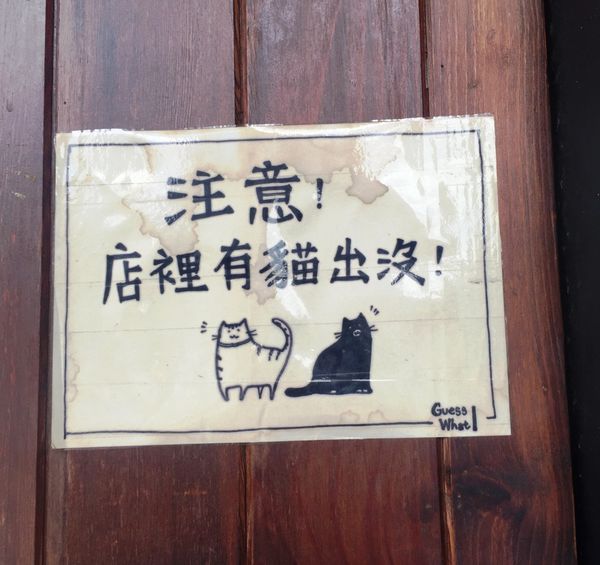 注意!
店裡有貓出沒!
Guess
What